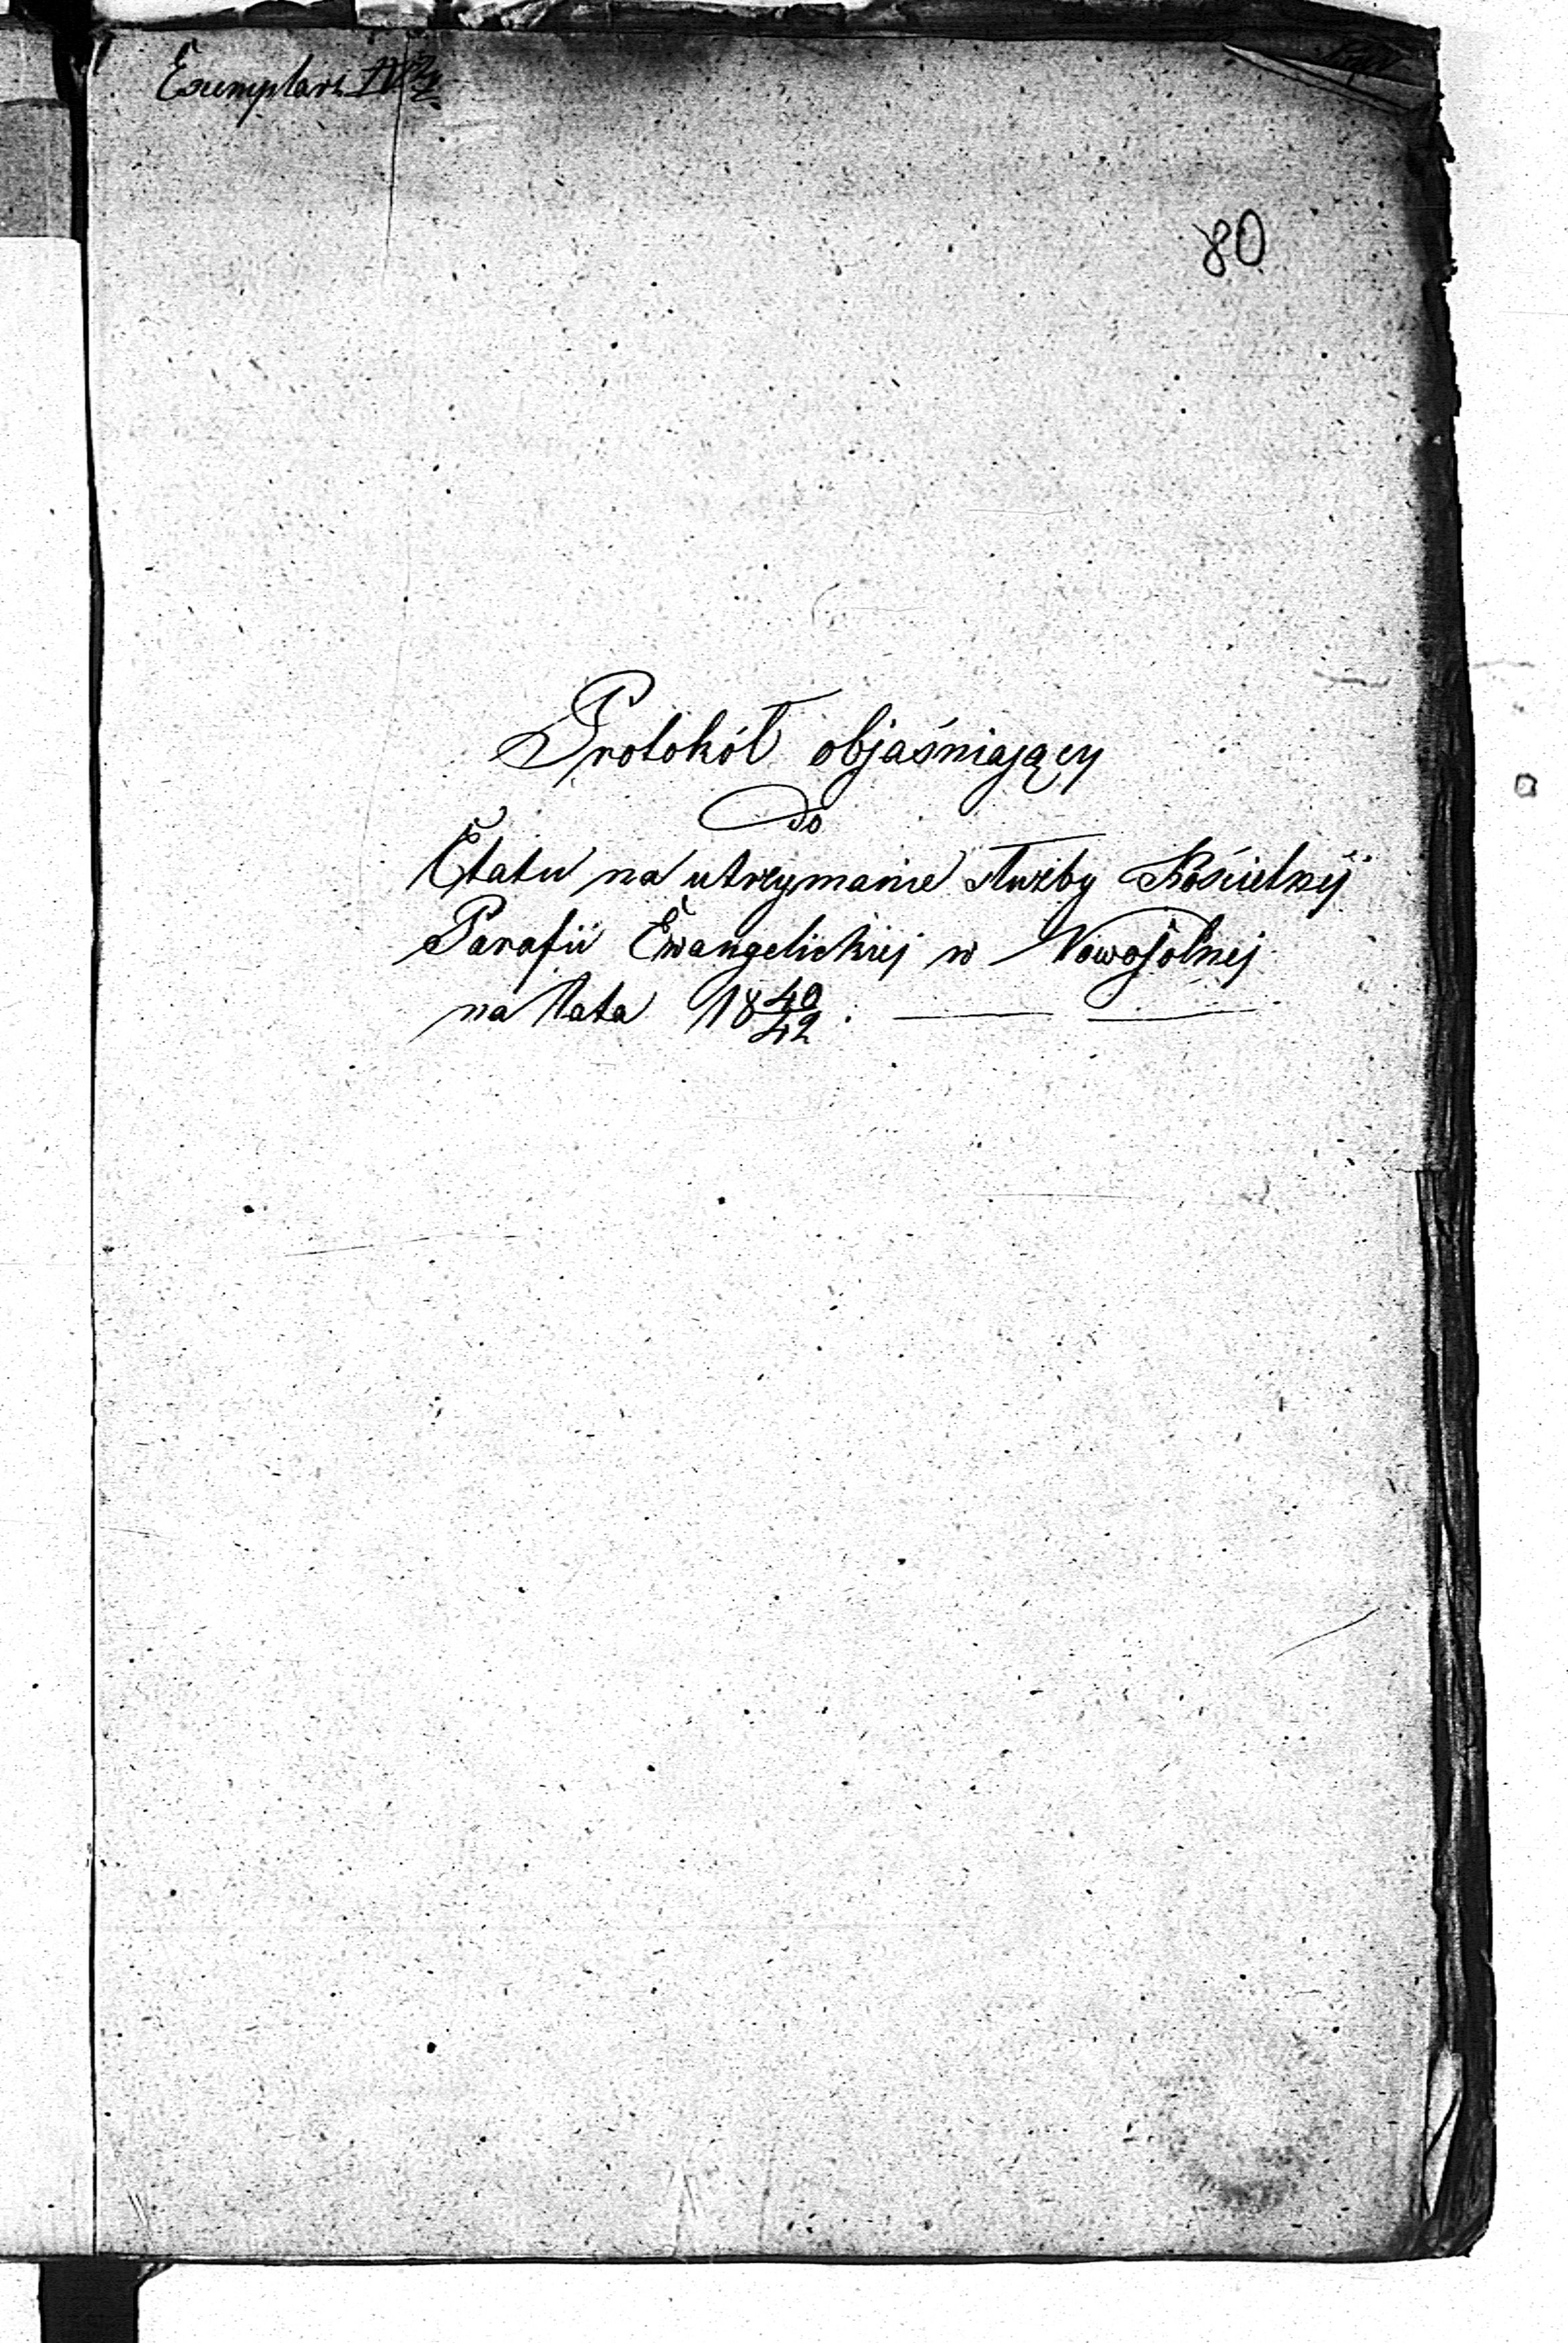 Exemplarz
80
Protokół objaśniający
do
Etatu na utrzymanie służby Kościelnéj
Parafii Ewangelickiéj w Nowosolnéj
na lata 18 40/42.